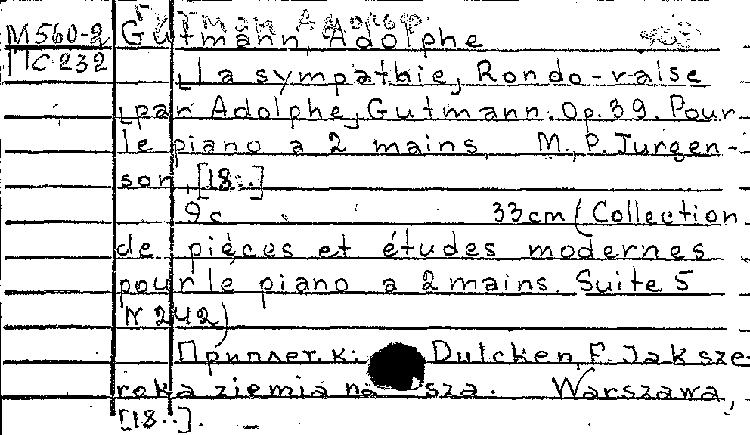 M560-2 Gutmann, Adolphe
ПС 232
La sympathie, Rondo-valse
par Adolphe, Gutmann. Op. 39. Pour
le piano a 2 mains. M., P. Jurgen-
son, [18..]
9с 33cm (Collection
de pièces et études modernes
pour le piano a 2 mains. Suite 5
N 242)
Приплет. к: Dulcken, F. Jak sze
roka ziemia na sza. Warszawa,
[18..].